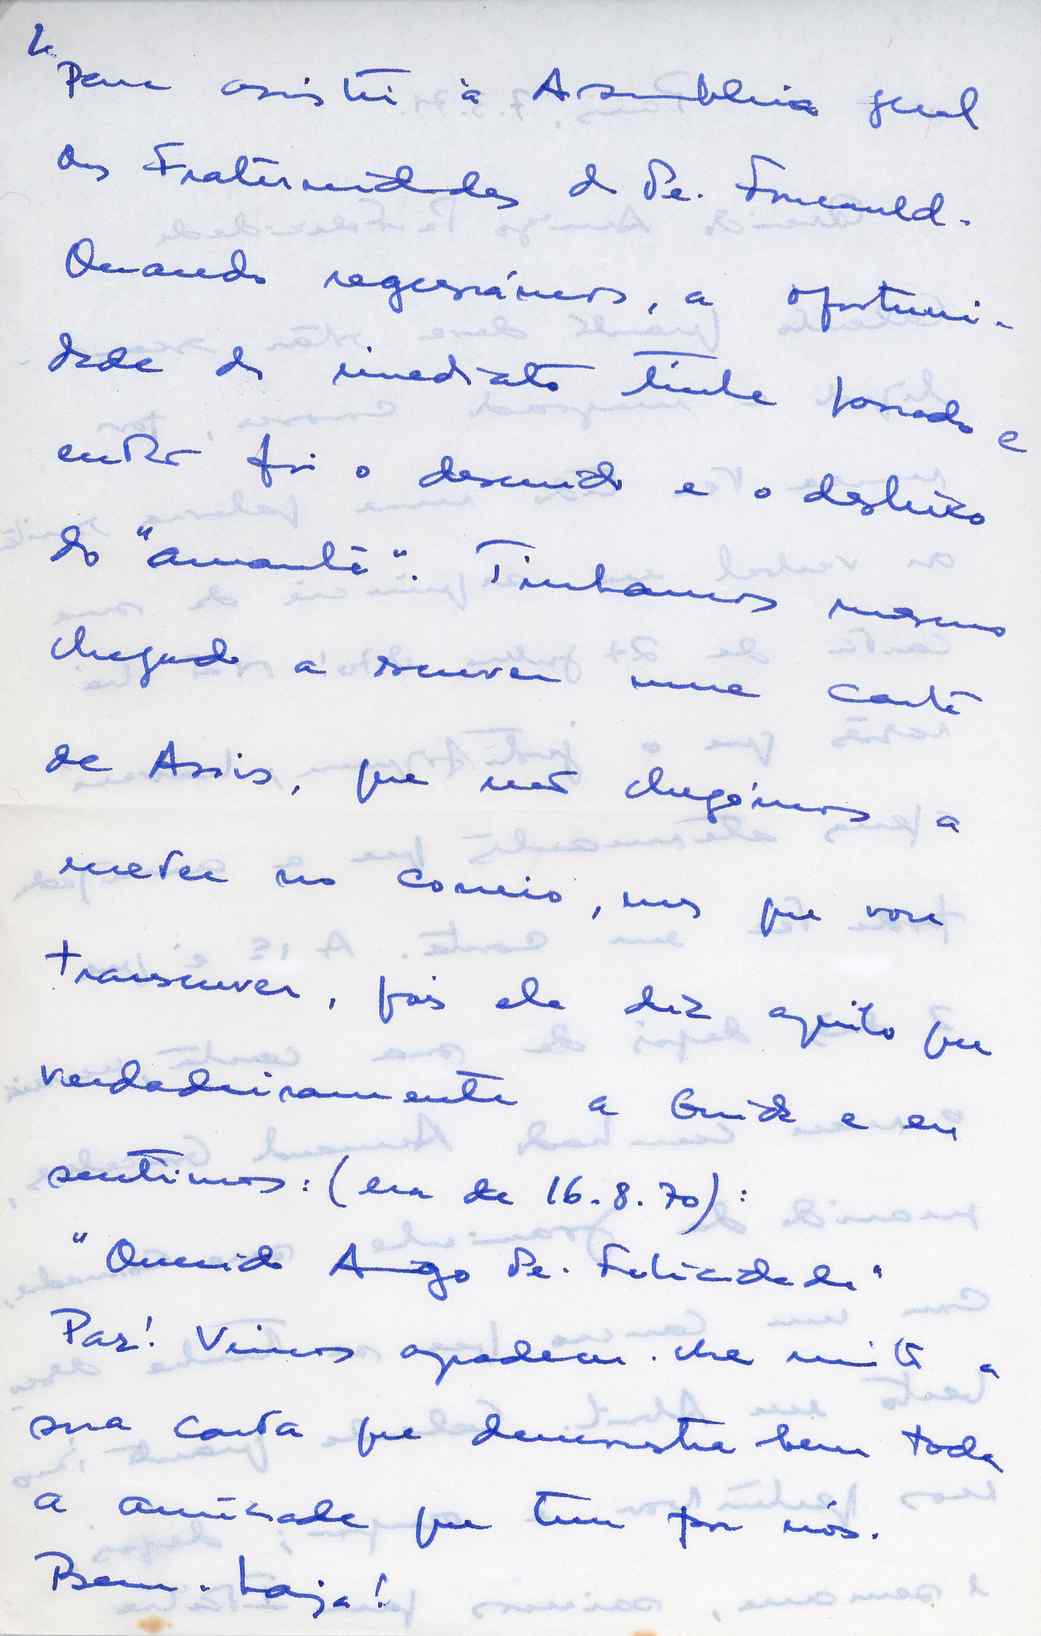 2.
Para assistir à Assembleia geral
das Fraternidades do Pe. Foucauld.
Quando regressámos, a oportuni-
dade do imediato tinha passado e
então foi o descuido e o desleixo
do "amanhã". Tínhamos mesmo
chegado a escrever uma carta
de Assis, que não chegámos a
meter no correio, mas que vou
transcrever, pois ela diz aquilo que
verdadeiramente a Guida e eu
sentimos: (era de 16.8.70):
"Querido Amigo Pe. Felicidade"
Paz! Vimos agradecer-lhe muito a
sua carta que demonstra bem toda
a amizade que tem por nós.
Bem-haja!